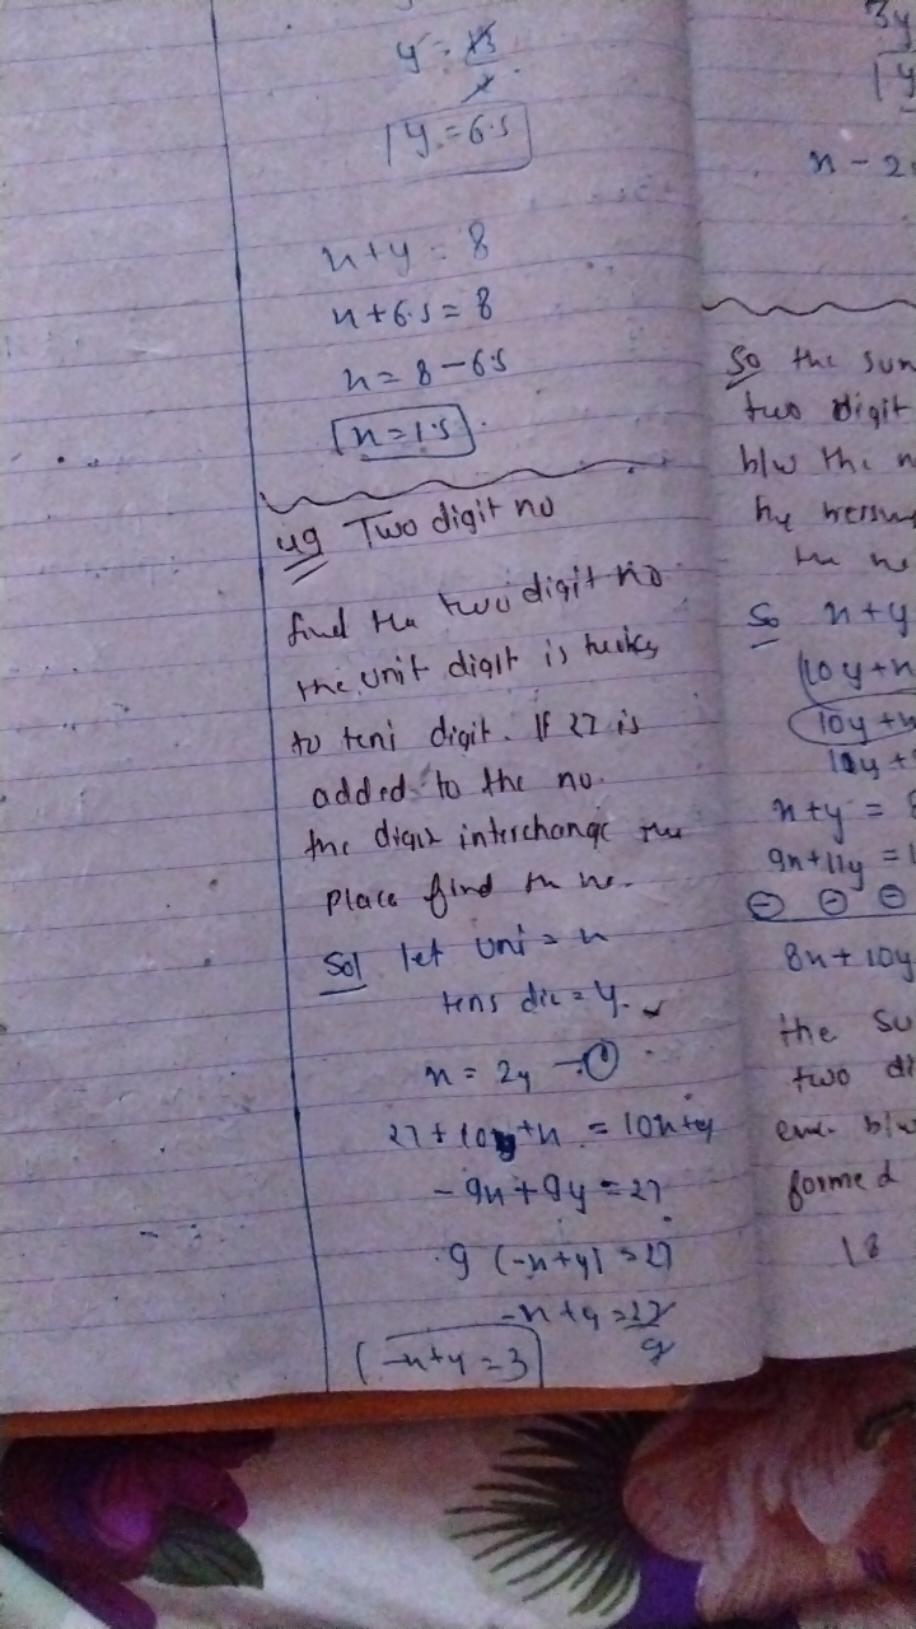 y = 13
2
y = 6.5
x + y = 8
x + 6.5 = 8
x = 8 - 6.5
x = 1.5
Two digit no
find the two digit no
the unit digit is twice
to tens digit. If 27 is
added to the no.
the digits interchange the
place find the no.
Sol let uni = x
tens dic = y.
x = 2y - ①
27 + 10y + x = 10x + y
- 9x + 9y = 27
9 (-x + y) = 27
-x + y = 27
9
-x + y = 3
3y
y
x - 2
So the sum
two digit
b/w the n
by
the
So x + y
10y + x
10y + x
x + y =
9x + 11y =
⊖ ⊖ ⊖
8x + 10y
the su
two di
b/w
formed
18